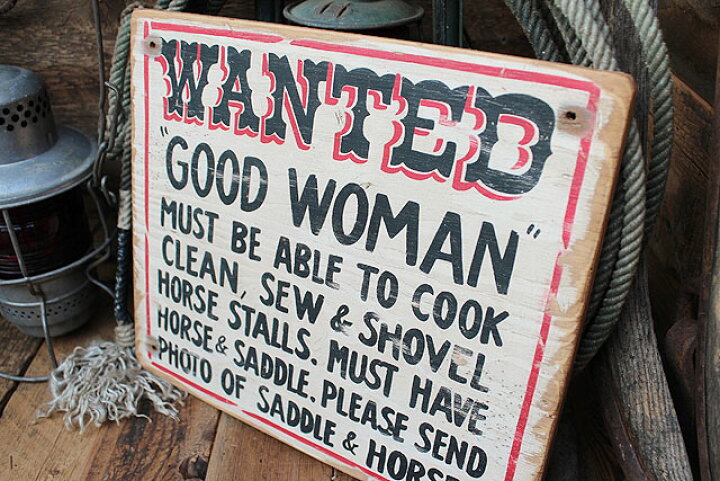 WANTED
"GOOD WOMAN"
MUST BE ABLE TO COOK
CLEAN, SEW & SHOVEL
HORSE STALLS. MUST HAVE
HORSE & SADDLE. PLEASE SEND
PHOTO OF SADDLE & HORSE